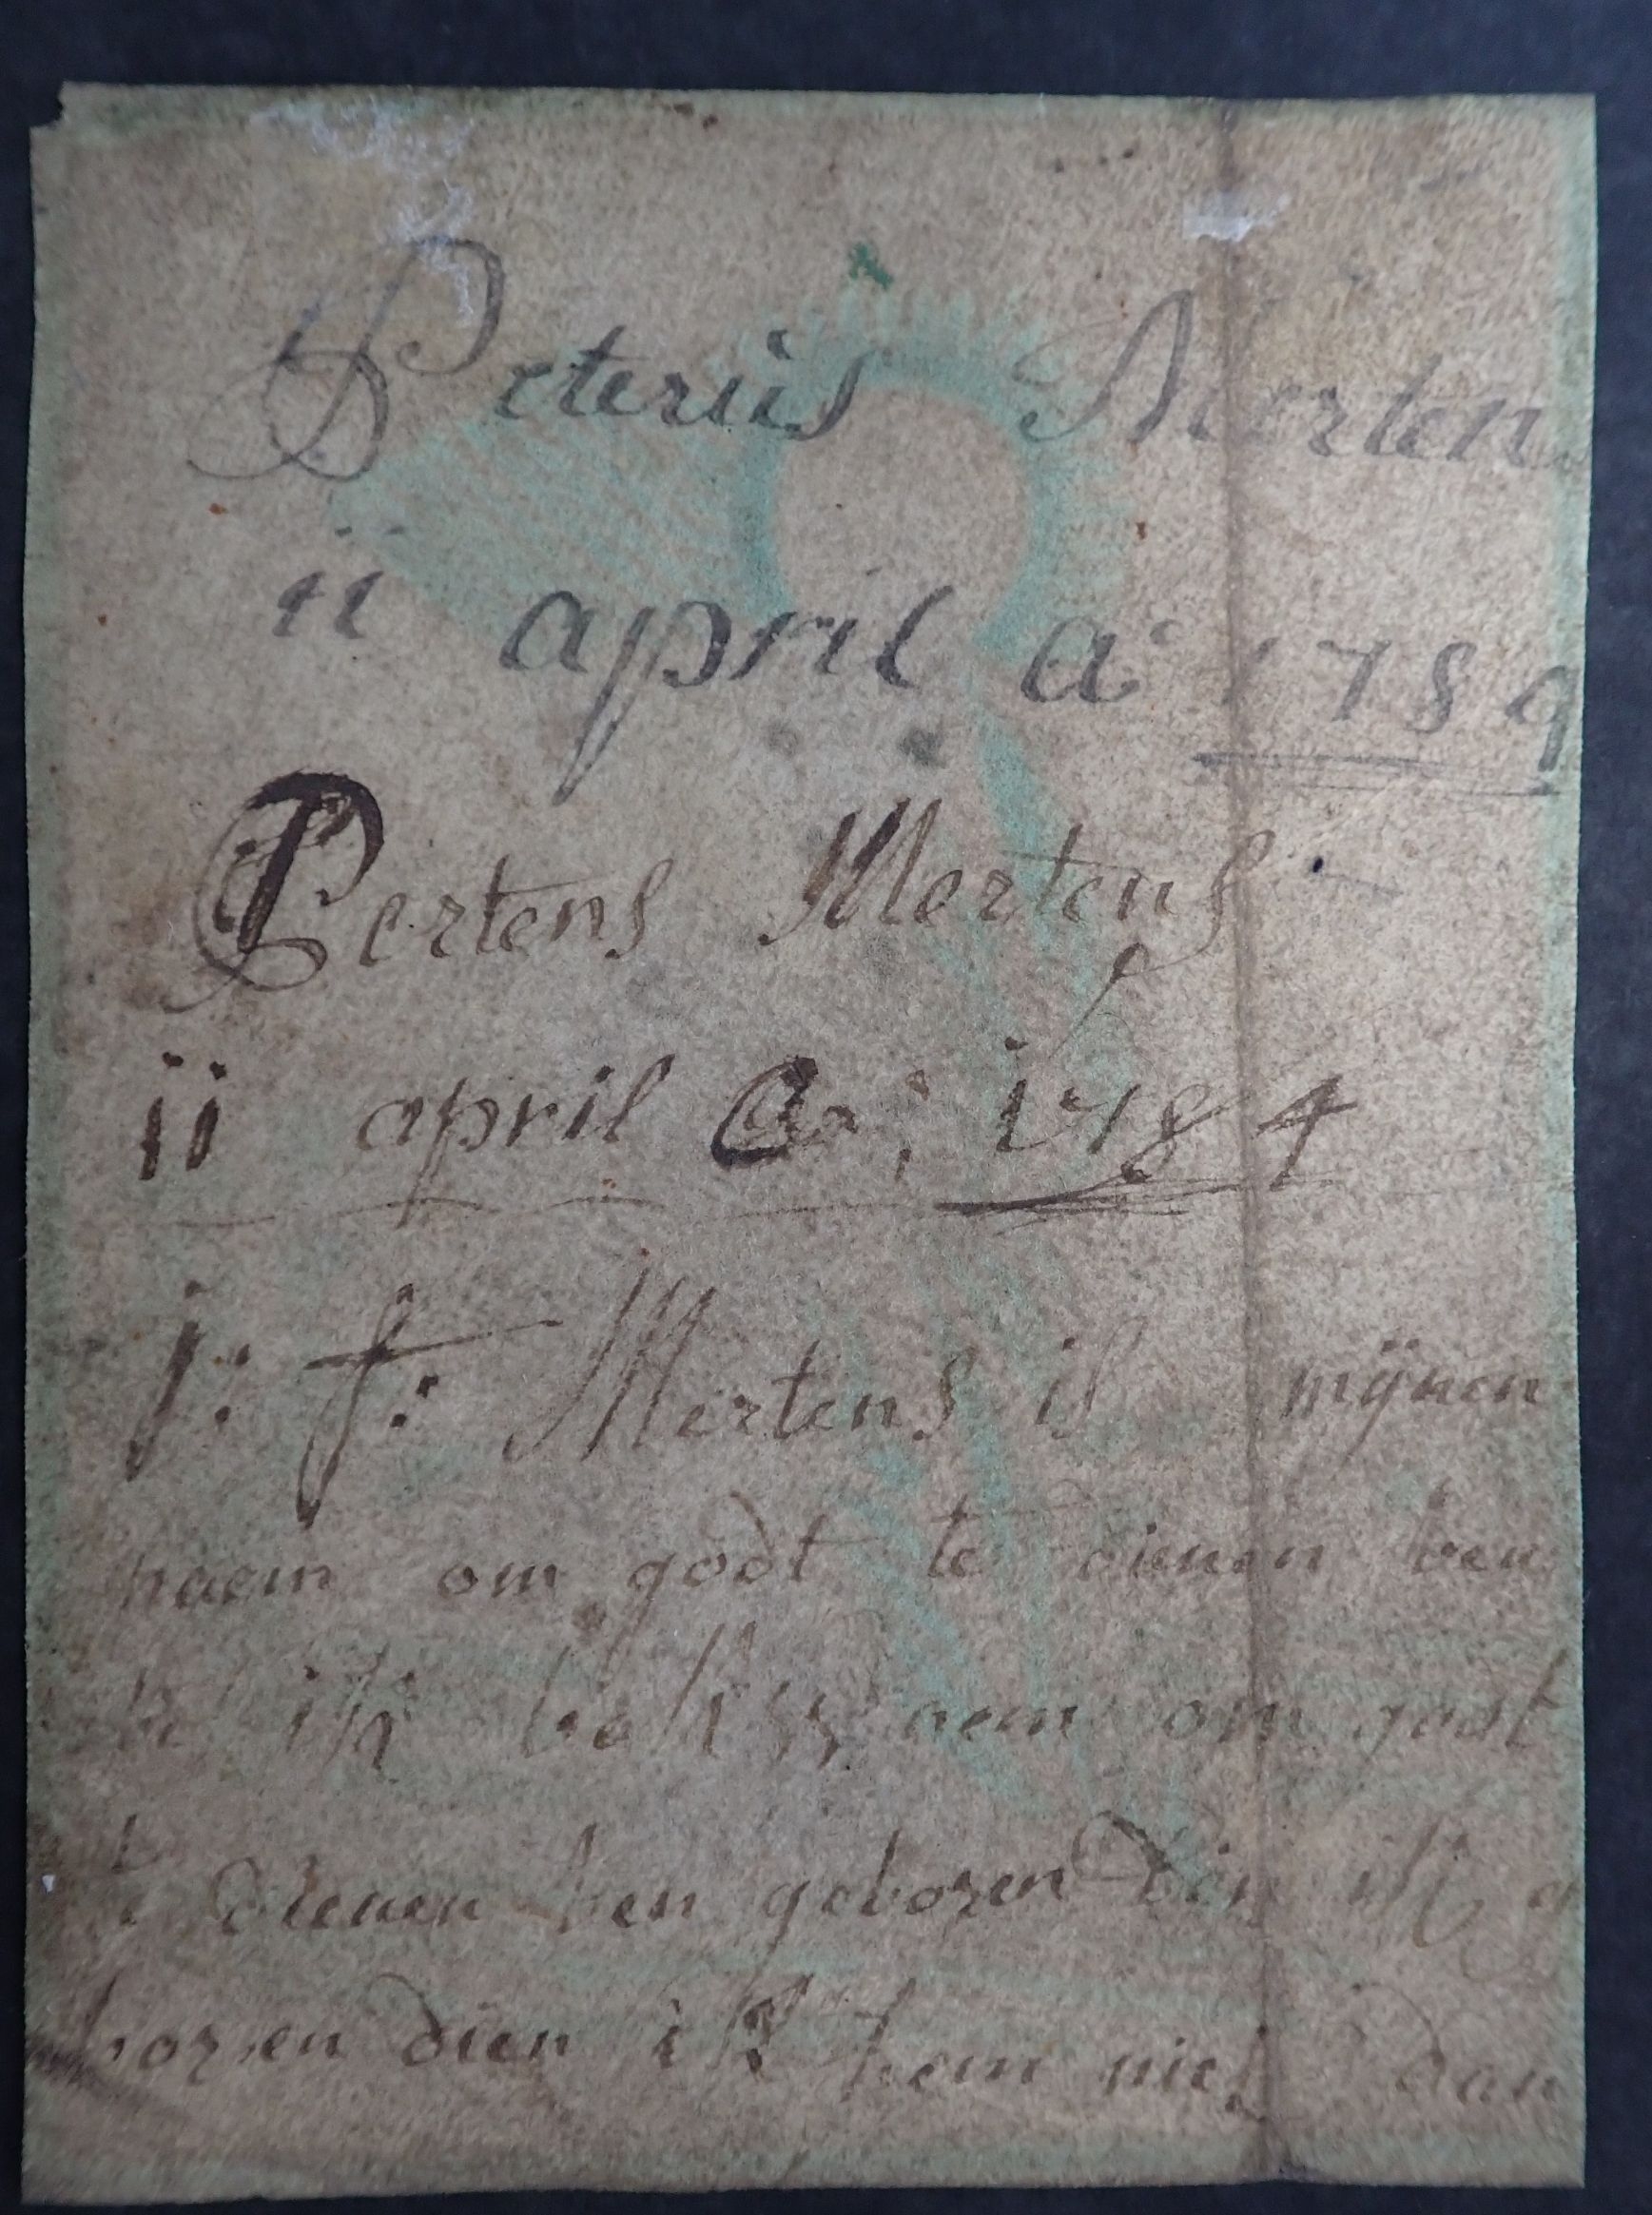 Peterus Merten
ii april a° 1789
Pertens Mertens
ii april Ao: i789
J: f: Mertens is mijnen
naem om godt te dienen ben
ik aem om godt
te dienen ben geboren dien ik g
boren dien ik hem niet dan